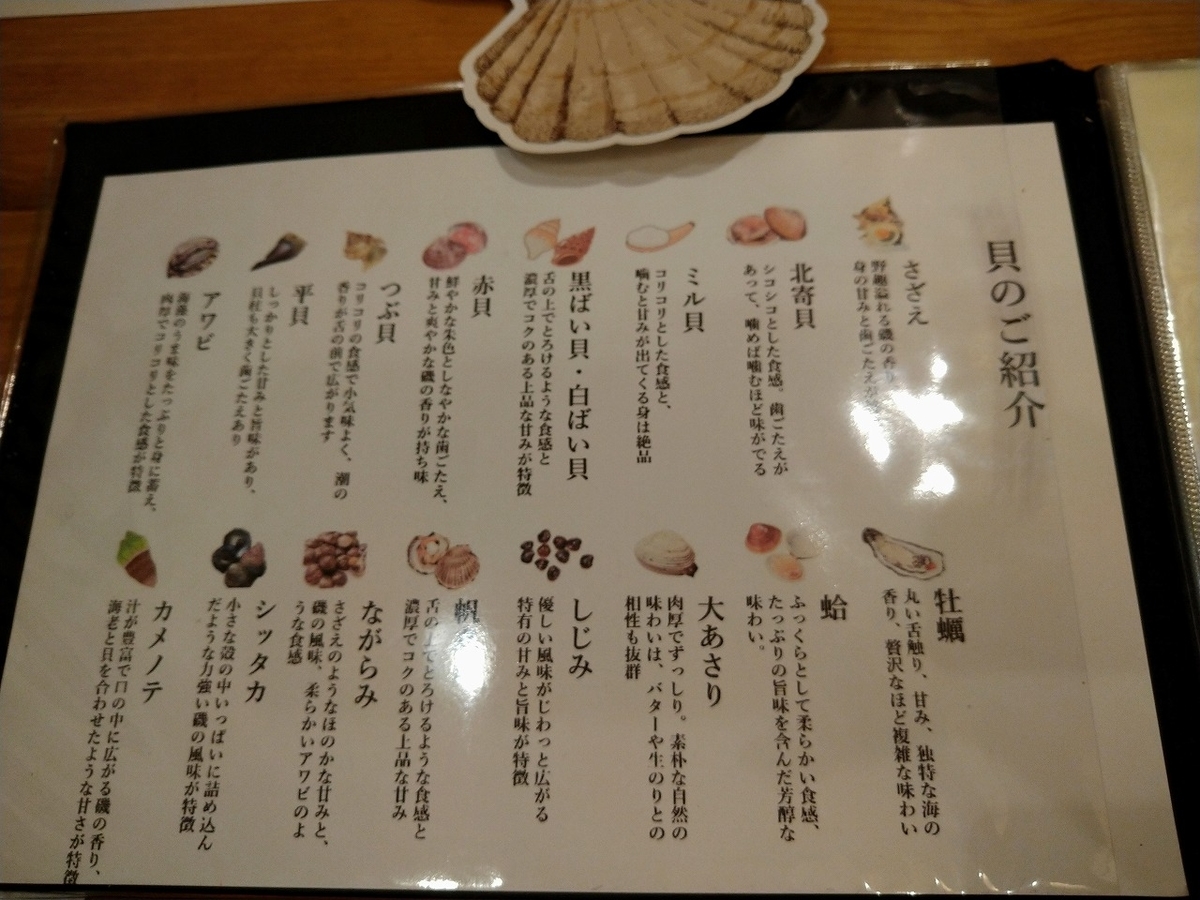 貝のご紹介
さざえ
野趣溢れる磯の香り
身の甘みと歯ごたえが
北寄貝
シコシコとした食感。歯ごたえが
あって、噛めば噛むほど味がでる
ミル貝
コリコリとした食感と、
噛むと甘みが出てくる身は絶品
黒ばい貝・白ばい貝
舌の上でとろけるような食感と
濃厚でコクのある上品な甘みが特徴
赤貝
鮮やかな朱色としなやかな歯ごたえ、
甘みと爽やかな磯の香りが持ち味
つぶ貝
コリコリの食感で小気味よく、潮の
香りが舌の前で広がります
平貝
しっかりとした甘みと旨味があり、
貝柱も大きく歯ごたえあり
アワビ
海藻のうま味をたっぷりと身に蓄え、
肉厚でコリコリとした食感が特徴
牡蠣
丸い舌触り、甘み、独特な海の
香り、贅沢なほど複雑な味わい
蛤
ふっくらとして柔らかい食感、
たっぷりの旨味を含んだ芳醇な
味わい。
大あさり
肉厚でずっしり。素朴な自然の
味わいは、バターや生のりとの
相性も抜群
しじみ
優しい風味がじわっと広がる
特有の甘みと旨味が特徴
舌の上でとろけるような食感と
濃厚でコクのある上品な甘み
ながらみ
さざえのようなほのかな甘みと、
磯の風味、柔らかいアワビのよ
うな食感
シッタカ
小さな殻の中いっぱいに詰め込ん
だような力強い磯の風味が特徴
カメノテ
汁が豊富で口の中に広がる磯の香り、
海老と貝を合わせたような甘さが特徴